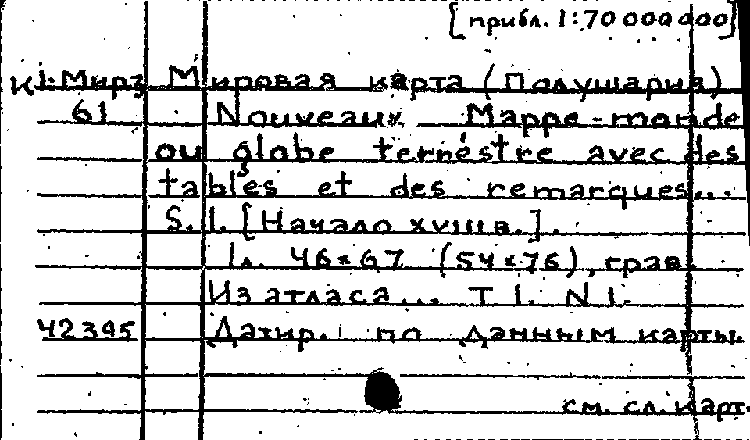 [прибл. 1:70 000 000]
К 1-Мир2 Мировая карта (Полушария)
61 Nouveaux Mappe-monde
ou globe terréstre avec des
tables et des remarques...
S.l. [Начало XVIII в.].
1 л. 46×67 (54×76), грав.
Из атласа... T 1. N 1.
42395 Датир. по данным карты.
см. сл. карт.